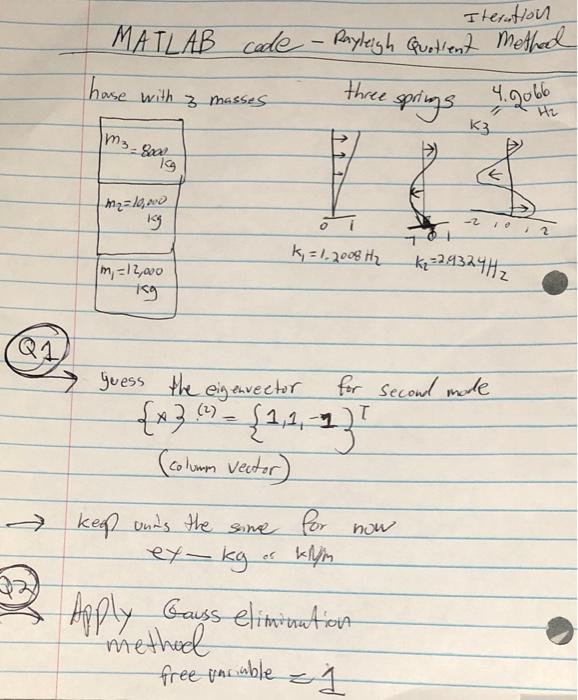 Iteration
MATLAB code - Rayleigh Quotient Method
house with 3 masses
three springs
4.2066
Hz
K3
m3 = 8000
kg
m2=10,000
kg
m1=12,000
kg
0 1
-1 0 1
-2 1 0 1 2
K1=1.2008Hz
K2=2.9324Hz
Q1
guess the eigenvector for second mode
{x}(2) = {1,1,-1}T
(column vector)
→ keep units the same for now
ex — kg or kN/m
Q2
Apply Gauss elimination
method
free variable = 1